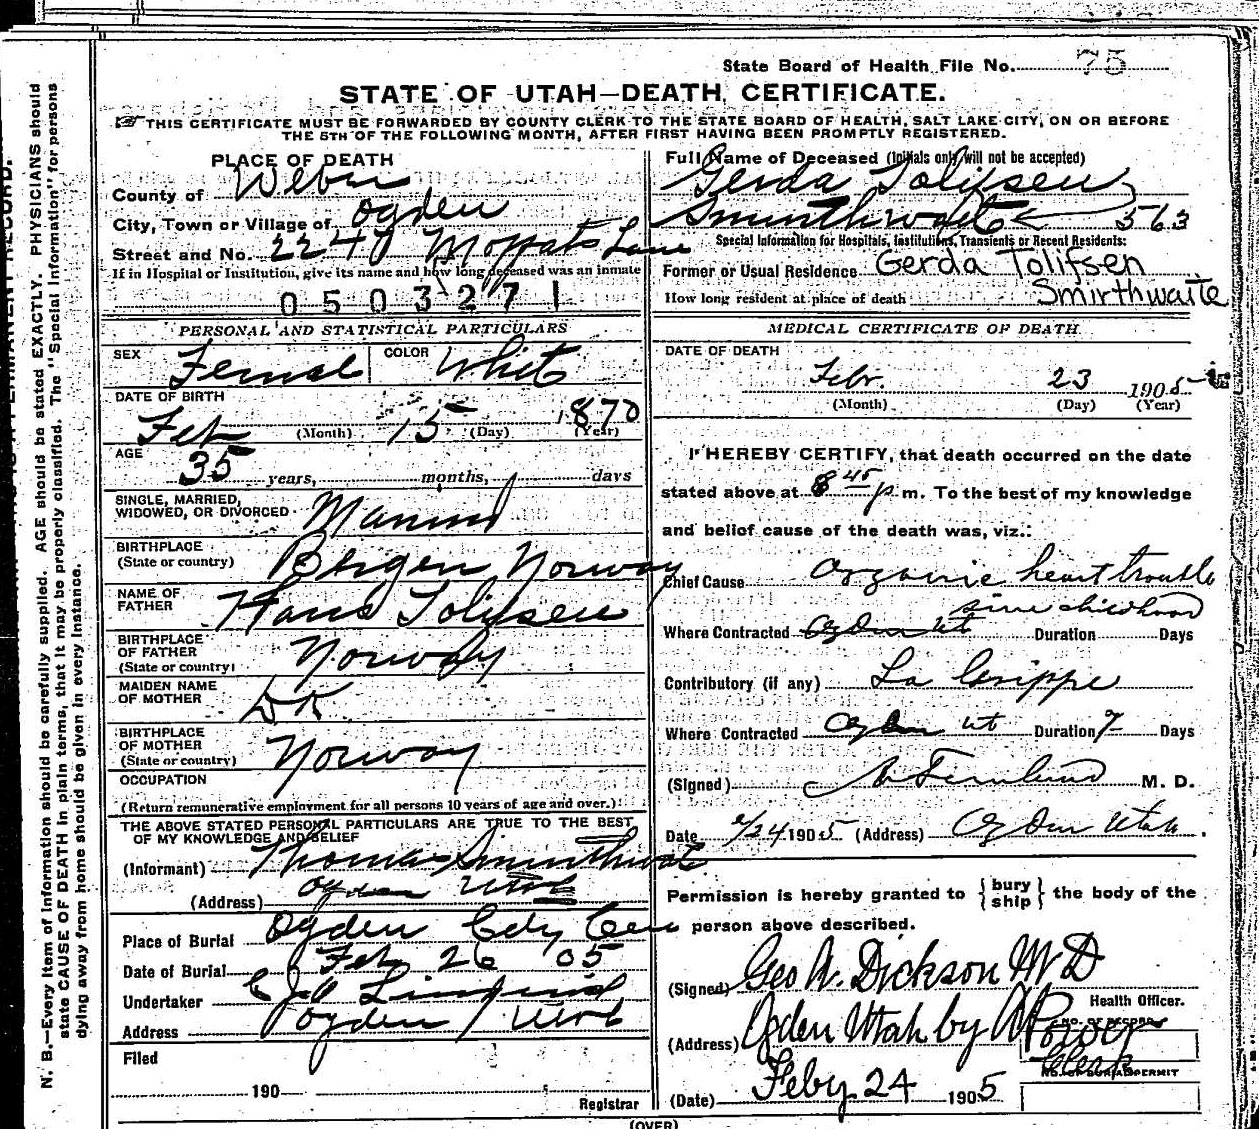 State Board of Health File No. 75
STATE OF UTAH—DEATH CERTIFICATE.
THIS CERTIFICATE MUST BE FORWARDED BY COUNTY CLERK TO THE STATE BOARD OF HEALTH, SALT LAKE CITY, ON OR BEFORE
THE 5TH OF THE FOLLOWING MONTH, AFTER FIRST HAVING BEEN PROMPTLY REGISTERED.
PLACE OF DEATH
County of Weber
City, Town or Village of Ogden
Street and No. 2240 Moffats Lane
If in Hospital or Institution, give its name and how long deceased was an inmate
0503271
PERSONAL AND STATISTICAL PARTICULARS
SEX Female COLOR White
DATE OF BIRTH
Feb 15 1870
(Month) (Day) (Year)
AGE
35 years, months, days
SINGLE, MARRIED,
WIDOWED, OR DIVORCED Married
BIRTHPLACE
(State or country) Bergen Norway
NAME OF
FATHER Hans Tolifsen
BIRTHPLACE
OF FATHER
(State or country) Norway
MAIDEN NAME
OF MOTHER DK
BIRTHPLACE
OF MOTHER
(State or country) Norway
OCCUPATION
(Return remunerative employment for all persons 10 years of age and over.)
THE ABOVE STATED PERSONAL PARTICULARS ARE TRUE TO THE BEST
OF MY KNOWLEDGE AND BELIEF
(Informant) Thomas Smirthwaite
(Address) Ogden Utah
Place of Burial Ogden City Cem
Date of Burial Feb 26 05
Undertaker
Address Ogden Utah
Filed
190
Registrar
Full Name of Deceased (Initials only will not be accepted)
Gerda Tolifsen
Smirthwaite 563
Special Information for Hospitals, Institutions, Transients or Recent Residents:
Former or Usual Residence Gerda Tolifsen
Smirthwaite
How long resident at place of death
MEDICAL CERTIFICATE OF DEATH
DATE OF DEATH
Febr. 23 1905
(Month) (Day) (Year)
I HEREBY CERTIFY, that death occurred on the date
stated above at 8 45 p. m. To the best of my knowledge
and belief cause of the death was, viz.:
Chief Cause Organic heart trouble
since childhood
Where Contracted Ogden Ut Duration Days
Contributory (if any) La Grippe
Where Contracted Ogden Ut Duration 7 Days
(Signed) M. D.
Date 2/24 1905 (Address) Ogden Utah.
Permission is hereby granted to { bury ship } the body of the
person above described.
(Signed) Geo W. Dickson MD
Health Officer.
(Address) Ogden Utah by
Clerk
NO. OF RECORD
NO. OF BURIAL PERMIT
(Date) Feby 24 1905
(OVER)
N. B.—Every item of information should be carefully supplied. AGE should be stated EXACTLY. PHYSICIANS should
state CAUSE OF DEATH in plain terms, that it may be properly classified. The "Special Information" for persons
dying away from home should be given in every instance.